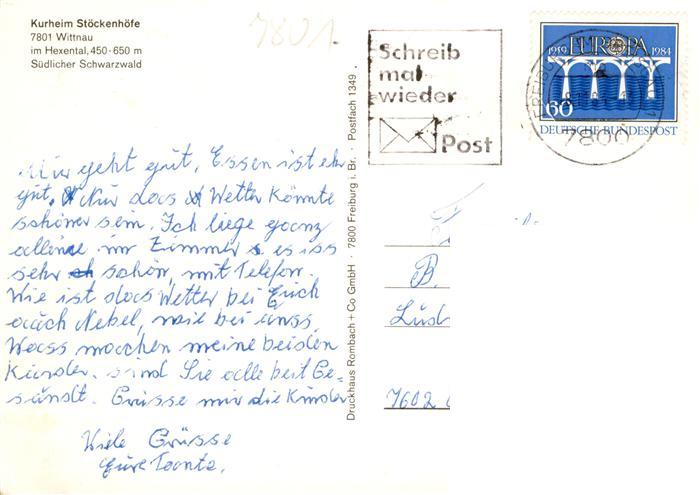 Kurheim Stöckenhöfe
7801 Wittnau
im Hexental, 450-650 m
Südlicher Schwarzwald
7801.
Mir geht gut, Essen ist ehr
gut. Nur das Wetter könnte
schöner sein. Ich liege ganz
alleine im Zimmer es iss
sehr schön, mit Telefon.
Wie ist das Wetter bei Euch
auch Nebel, wie bei unss
Wass machen meine beiden
Kinder. sind Sie alle beit Ge-
sundt. Grüsse mir die Kinder
Viele Grüsse
Eure Toonta.
Druckhaus Rombach + Co GmbH · 7800 Freiburg i. Br. · Postfach 1349 ·
Schreib
mal
wieder
Post
1959 EUROPA 1984
60
DEUTSCHE BUNDESPOST
7800
B.
Lud
7602